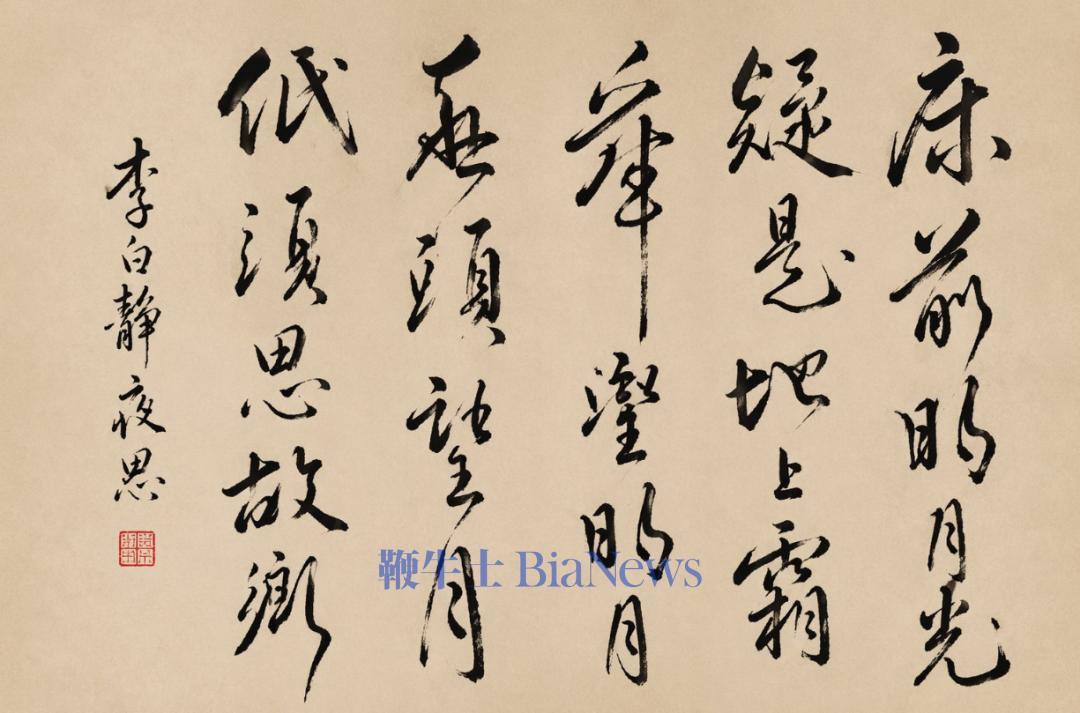 床前明月光
疑是地上霜
舉明月
頭望月
低湏思故鄉
李白靜夜思
鞭牛士 BiaNews